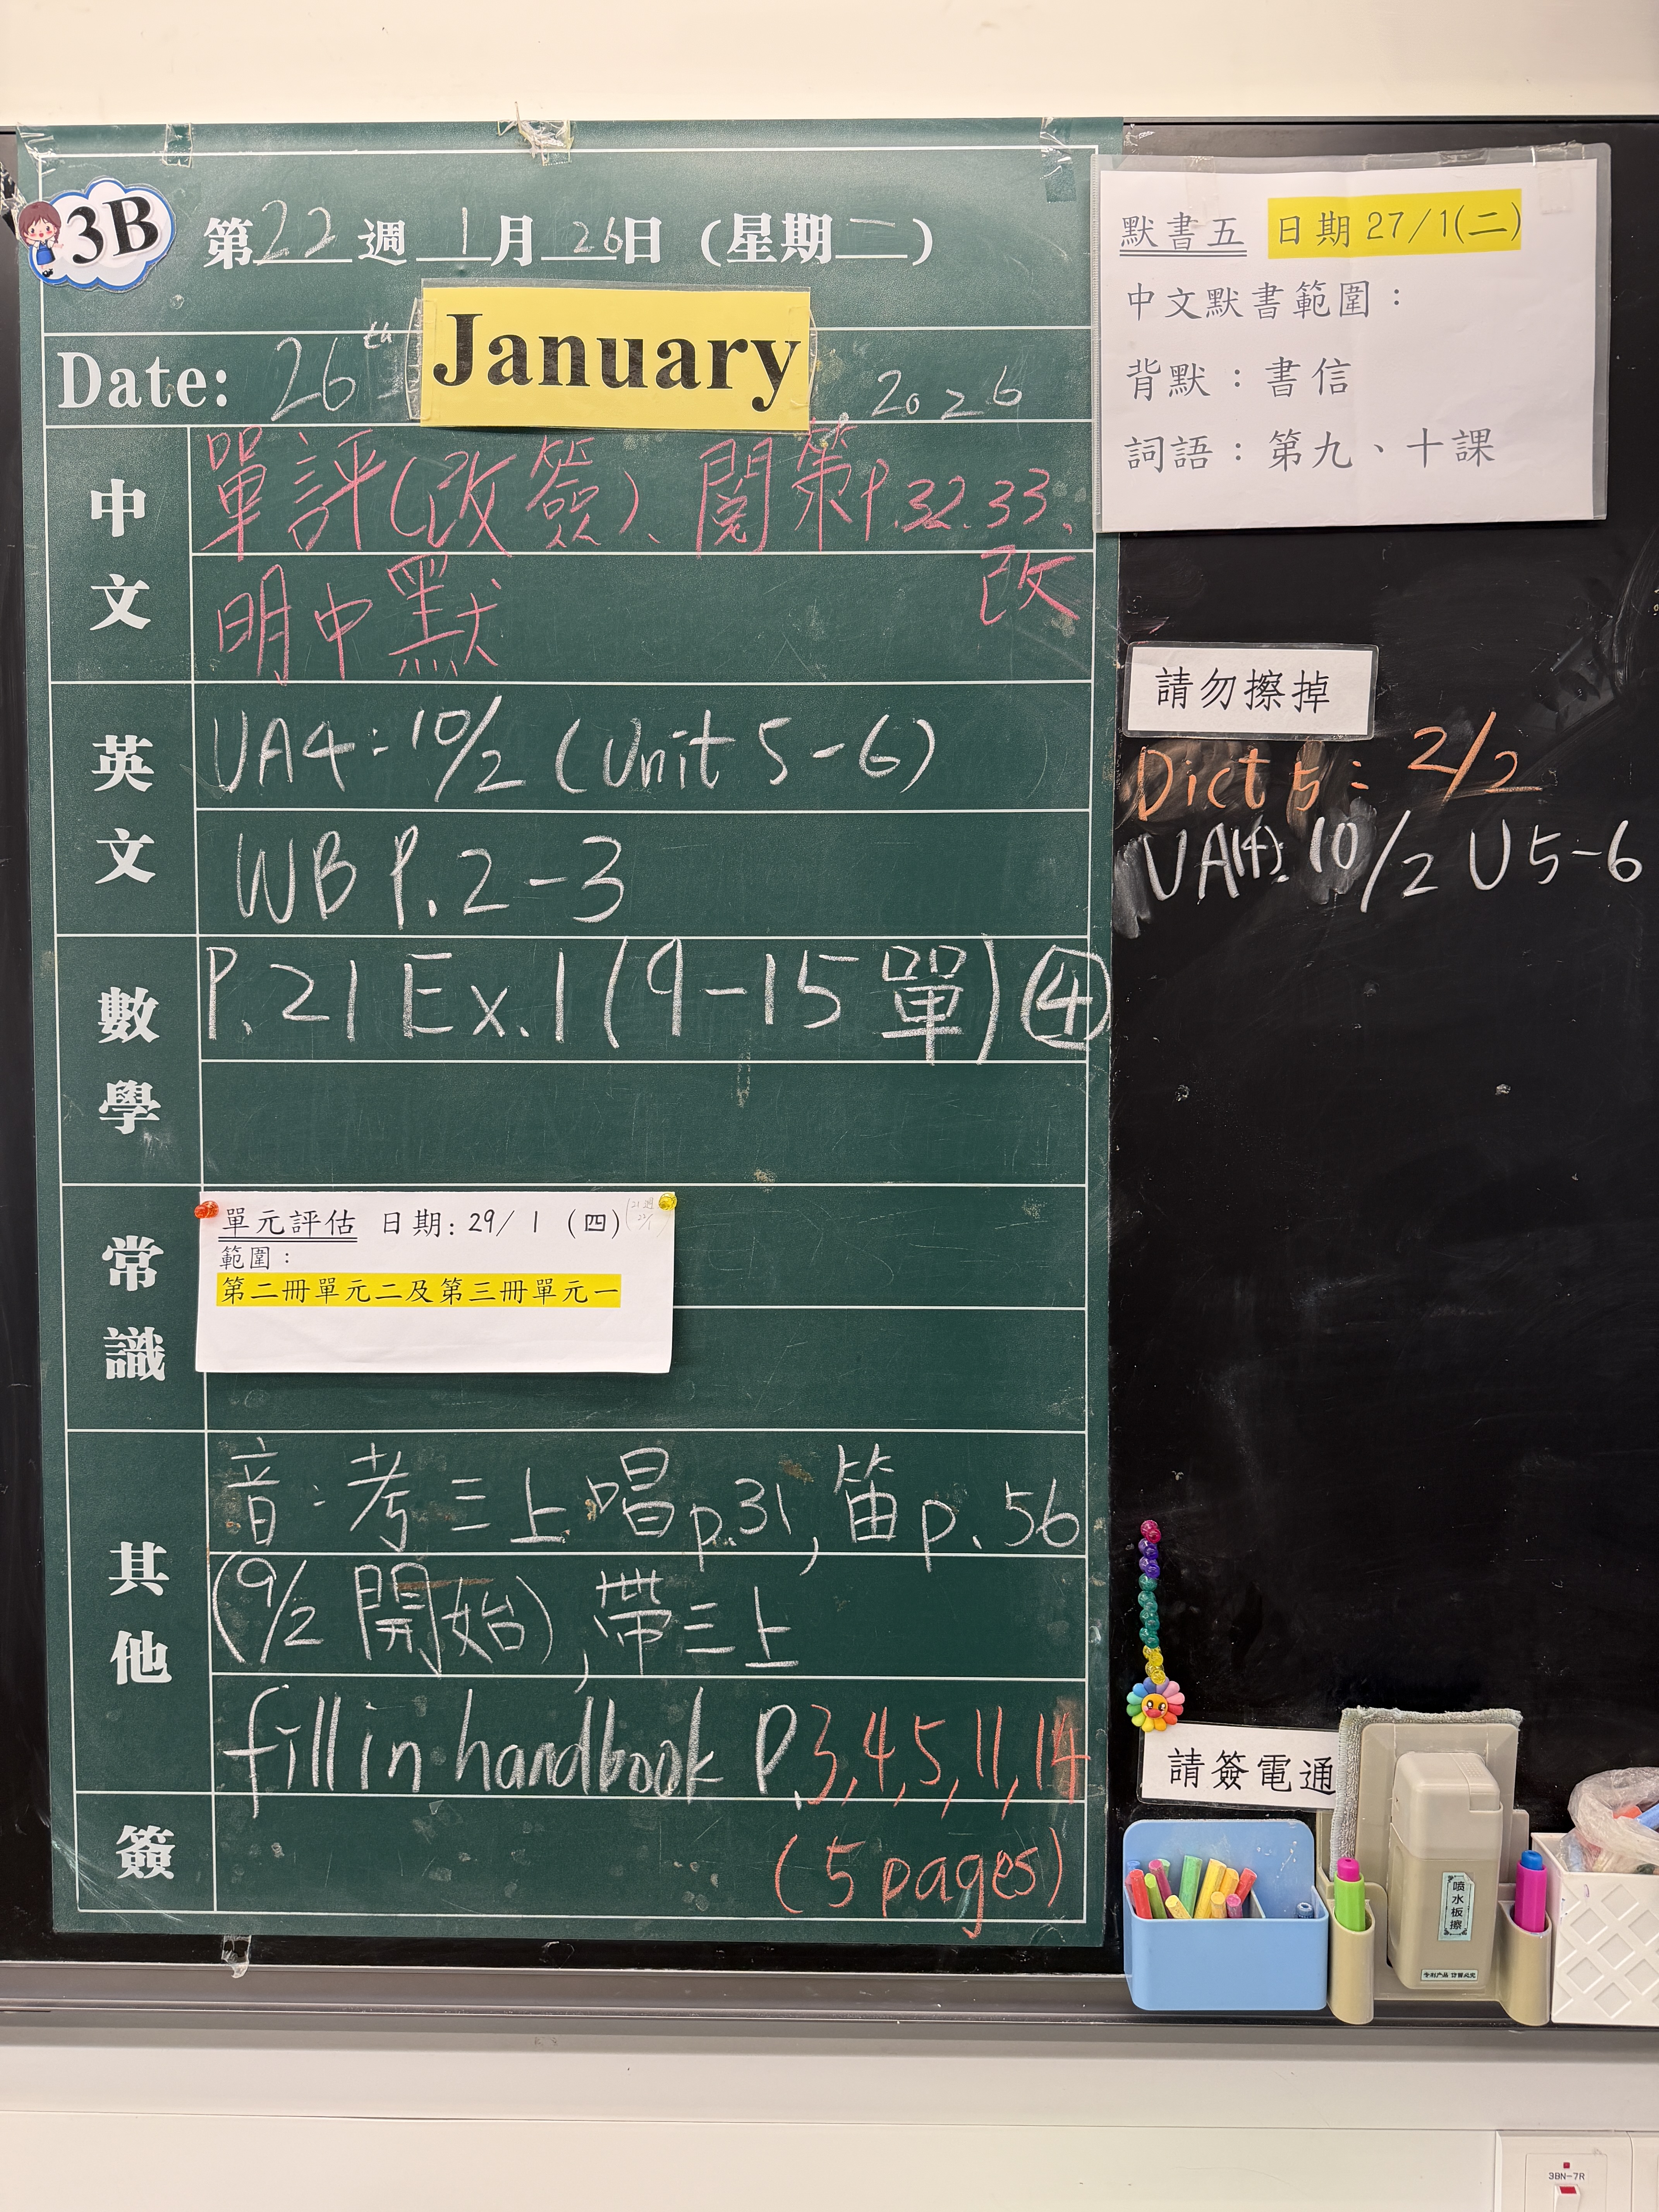 3B
第22週 1月26日 (星期一)
Date: 26th January, 2026
中文
單評(改簽)、閱策P.32.33、改
明中默
英文
UA4: 10/2 (Unit 5-6)
WB P.2-3
數學
P.21 Ex.1 (9-15單) ④
常識
單元評估 日期: 29/ 1 (四)
範圍：
第二冊單元二及第三冊單元一
其他
音: 考三上唱p.31, 笛p.56
(9/2 開始), 帶三上
fill in handbook P.3,4,5,11,14
(5 pages)
簽
默書五 日期 27/1(二)
中文默書範圍：
背默：書信
詞語：第九、十課
請勿擦掉
Dict 5: 2/2
UA(4): 10/2 U5-6
請簽電通
喷水板擦
专利产品 仿冒必究
3BN-7R